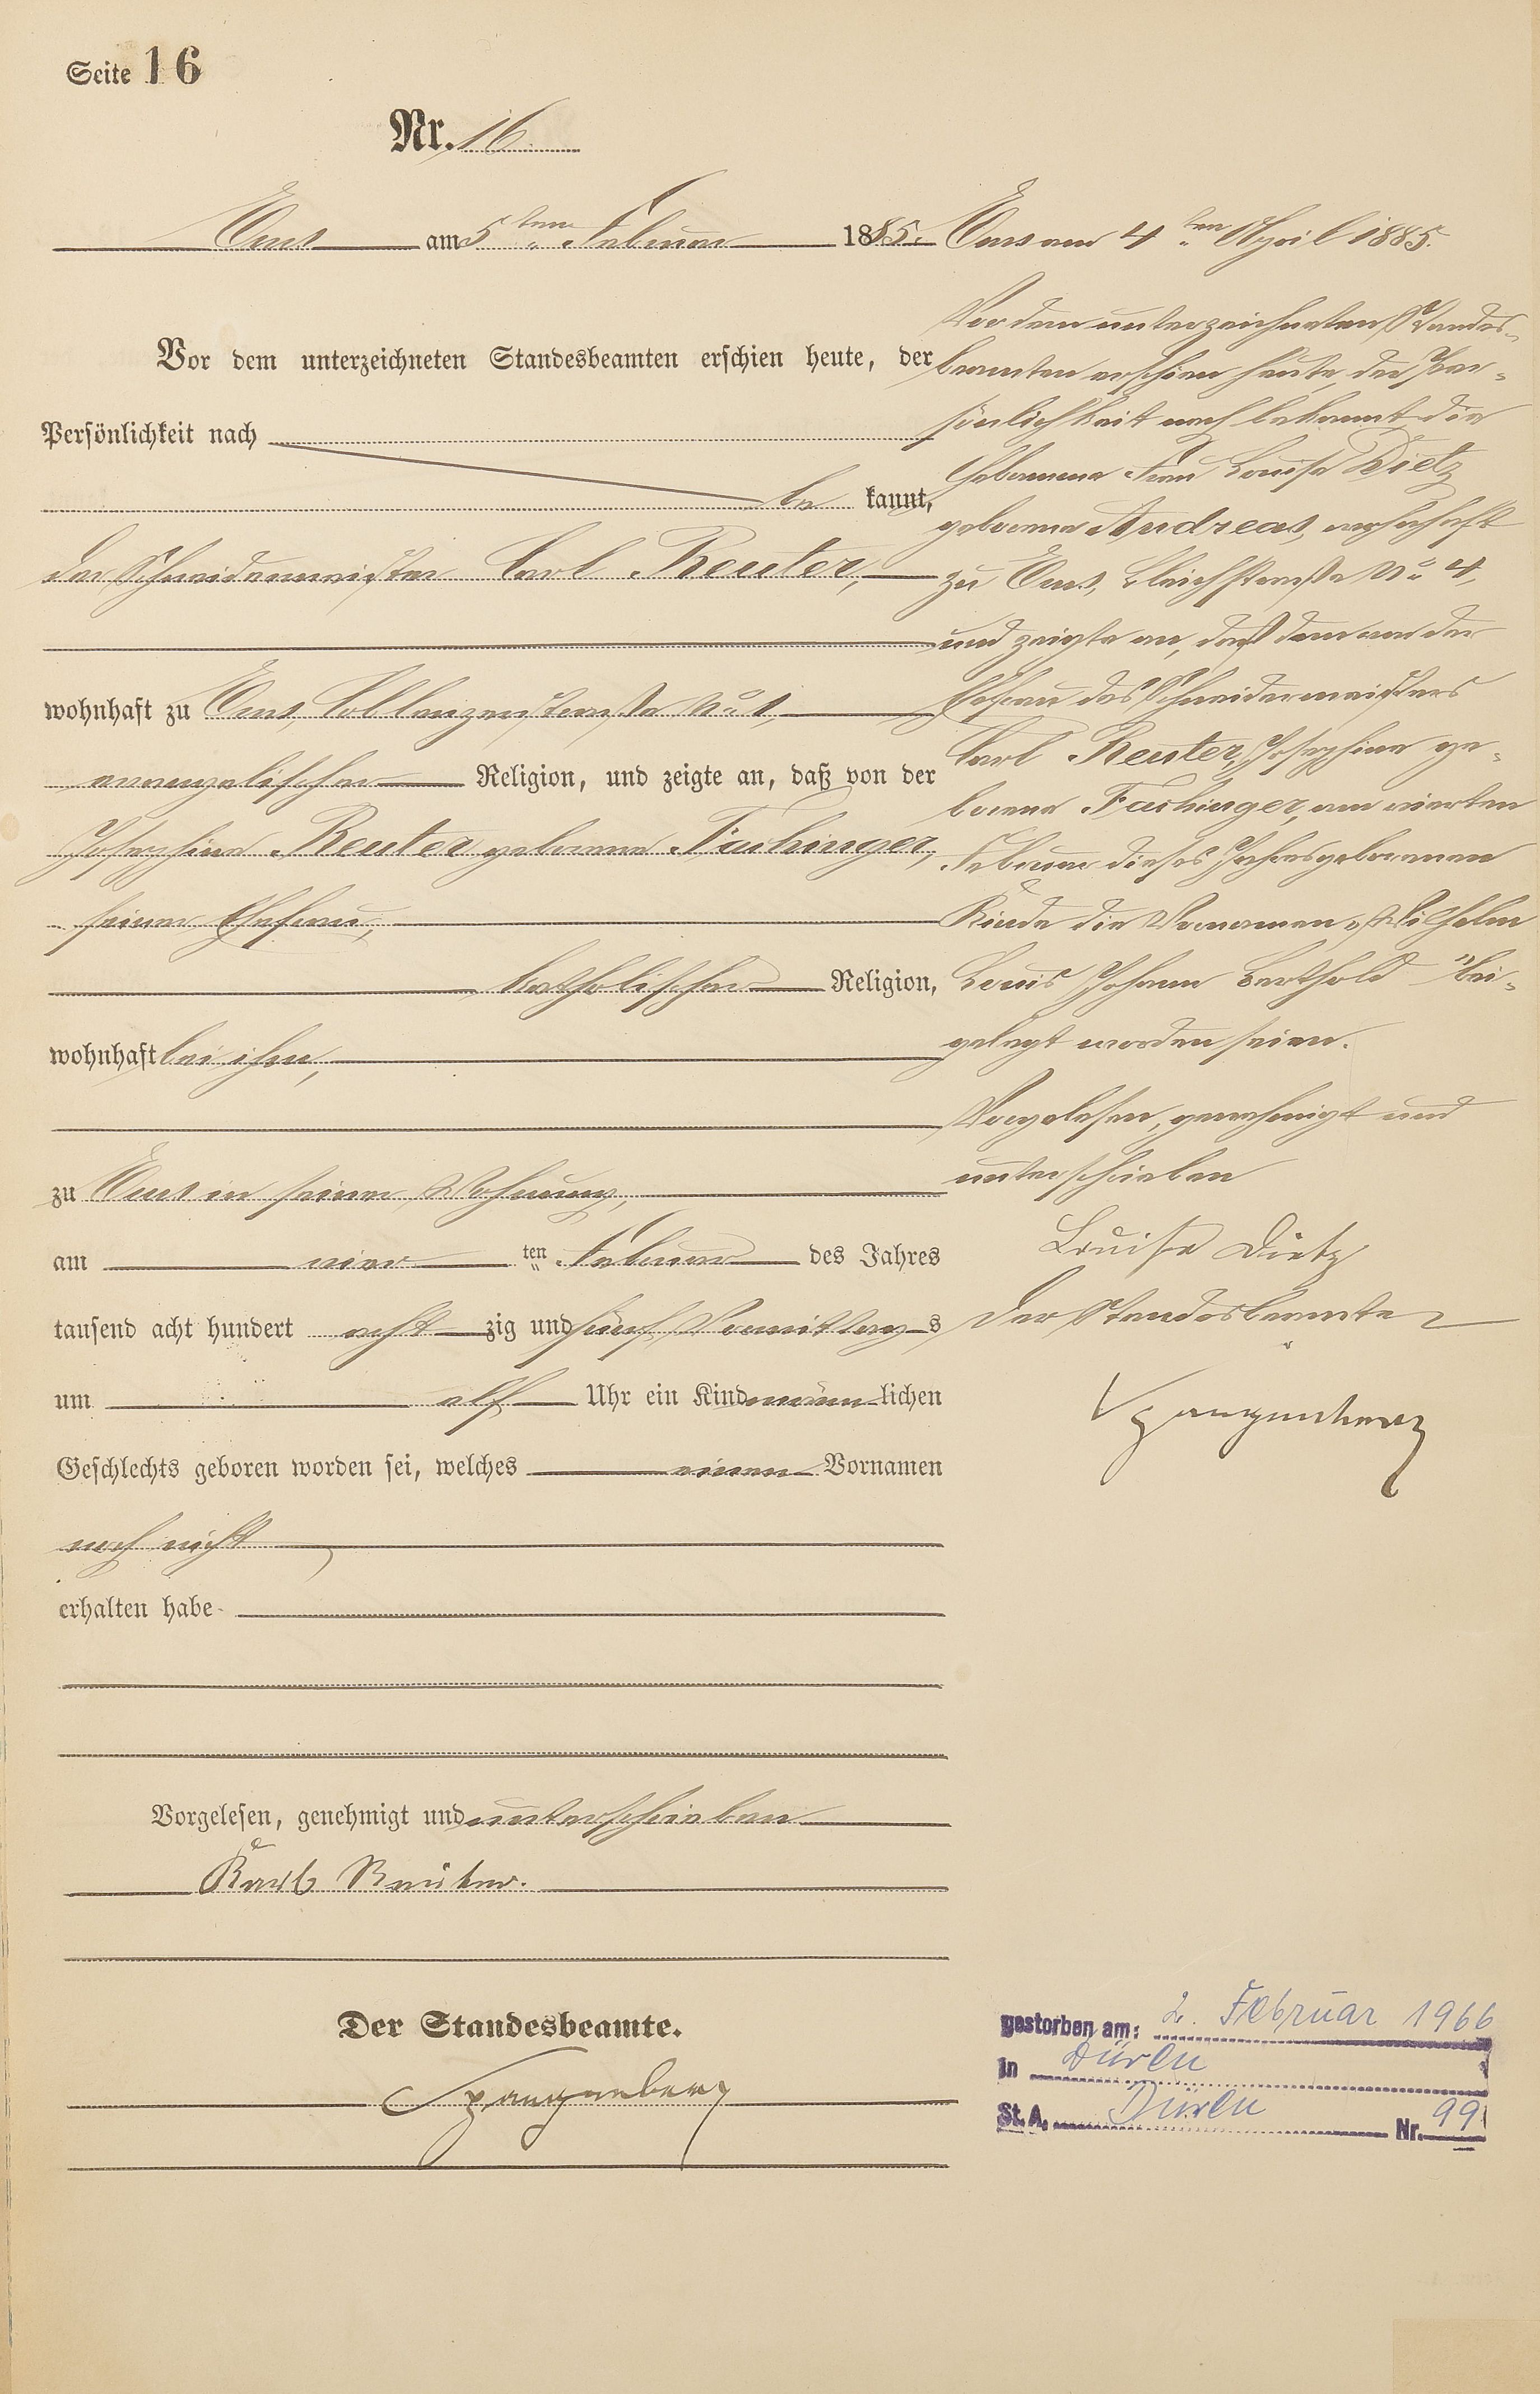 Seite 16
Nr. 16.
Ems am 5ten Februar 1885.
Vor dem unterzeichneten Standesbeamten erschien heute, der
Persönlichkeit nach
be kannt,
der Schneidermeister Carl Reuter,
wohnhaft zu Ems, Coblenzerstraße No 1,
evangelischer Religion, und zeigte an, daß von der
Josephine Reuter geborene Fachinger,
seiner Ehefrau,
katholischer Religion,
wohnhaft bei ihm,
zu Ems in seiner Wohnung,
am vier ten Februar des Jahres
tausend acht hundert acht zig und fünf Vormittag s
um elf Uhr ein Kind männ lichen
Geschlechts geboren worden sei, welches einen Vornamen
noch nicht
erhalten habe
Vorgelesen, genehmigt und unterschrieben
Karl Reuter.
Der Standesbeamte.
Spangenberg
Ems am 4ten April 1885.
Vor dem unterzeichneten Standes-
beamten erschien heute, der Per-
sönlichkeit nach bekannt, die
Hebamme Frau Louise Dietz
geborene Andreas, wohnhaft
zu Ems, Bleichstraße No 4,
und zeigte an, daß dem von der
Ehefrau des Schneidermeisters
Carl Reuter, Josephine ge-
borene Fachinger, am vierten
Februar dieses Jahres geborenen
Kinde die Vornamen „Wilhelm
Louis Johann Berthold" bei-
gelegt worden seien.
Vorgelesen, genehmigt und
unterschrieben
Louise Dietz
Der Standesbeamte
Spangenberg
gestorben am: 2. Februar 1966
in Düren
St. A. Düren Nr. 99